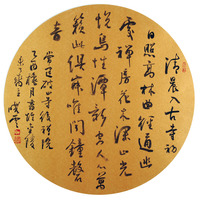 清晨入古寺初
日照高林曲徑通幽
處禪房花木深山光
悅鳥性潭影空人心萬
籟此俱寂唯聞鐘磬
音
常建破山寺後禪院